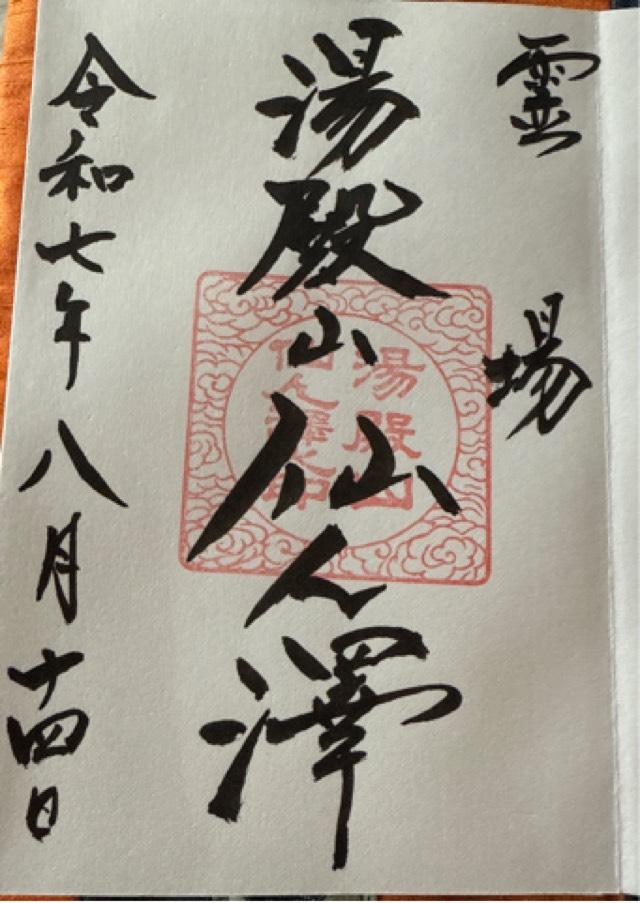 霊場
湯殿山仙人澤
湯殿山
仙人澤之印
令和七年八月十四日